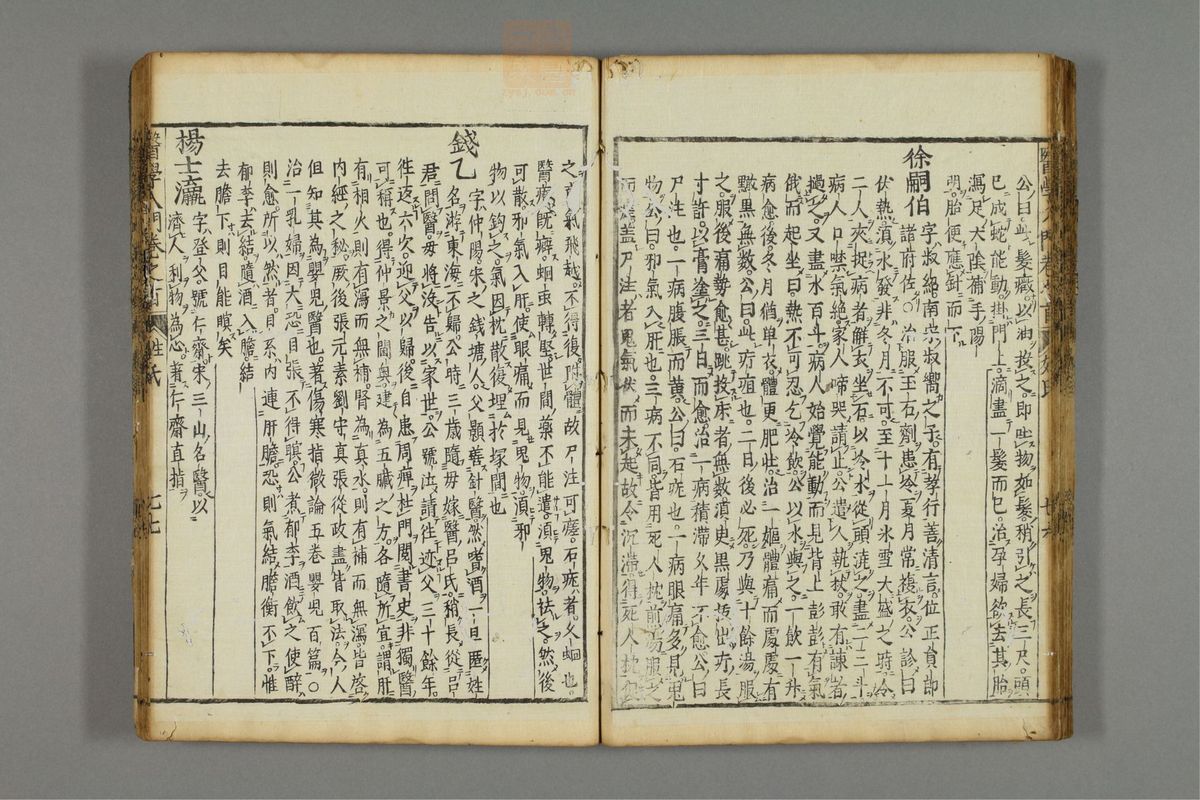 公曰此髮癥以油投之即吐物如髮稍引之長三尺頭
已成蛇能動掛門上滴盡一髮而已治孕婦欲去其胎
瀉足太陰補手陽
明胎便應針而下
徐嗣伯
字叔紹南宋叔嚮之子有孝行善清言位正員郎
諸府佐○治服玉石劑患冷夏月常複衣公診曰
伏熱須水發非冬月不可至十一月冰雪大盛之時令
二人夾捉病者解衣坐石以冷水從頭澆之盡二十斗
病人口噤氣絕家人啼哭請止公遣人執杖敢有諫者
撾之又盡水百斗病人始覺能動而見背上彭彭有氣
俄而起坐曰熱不可忍乞冷飲公以水與之一飲一升
病愈後冬月猶單衣體更肥壯治一嫗體痛而處處有
黰黑無數公曰此疔疽也二日後必死乃與十餘湯服
之服後痛勢愈甚跳投床者無數須臾黑處拔出疔長
寸許以膏塗之三日而愈治一病積滯久年不愈公曰
尸注也一病腹脹而黃公曰石蚘也一病眼痛多見鬼
物公曰邪氣入肝也三病不同皆用死人枕前湯服之
而愈盖尸注者鬼氣伏而未起故令沉滯得死人枕
之 氣飛越不得復附體故尸注可瘥石蚘者久蛔也
醫療既癖蛔虫轉堅世間藥不能遣須鬼物祛之然後
可散邪氣入肝使眼痛而見鬼物須邪
物以鈎之氣因枕散復埋於塚間也
錢乙
字仲陽宋之錢塘人父顥善針醫然嗜酒一旦匿姓
名游東海不歸公時三歲隨母嫁醫呂氏稍長從呂
君問醫母將沒告以家世公號泣請往迹父三十餘年
往返六次迎父以歸後自患周痺杜門閱書史非獨醫
可稱也得仲景之閫奧建為五臟之方各隨所宜謂肝
有相火則有瀉而無補腎為真水則有補而無瀉皆啓
內經之秘厥後張元素劉守真張從政盡皆取法今人
但知其為嬰児醫也著傷寒指微論五卷嬰児百篇○
治一乳婦因大恐目張不得瞑公煮郁李酒飲之使醉
則愈所以然者目系內連肝膽恐則氣結膽衡不下惟
郁李去結隨酒入膽結
去膽下則目能瞑矣
楊士瀛
字登父號仁齋宋三山名醫以
濟人利物為心著仁齋直指
醫學入門卷之首
姓氏
七七